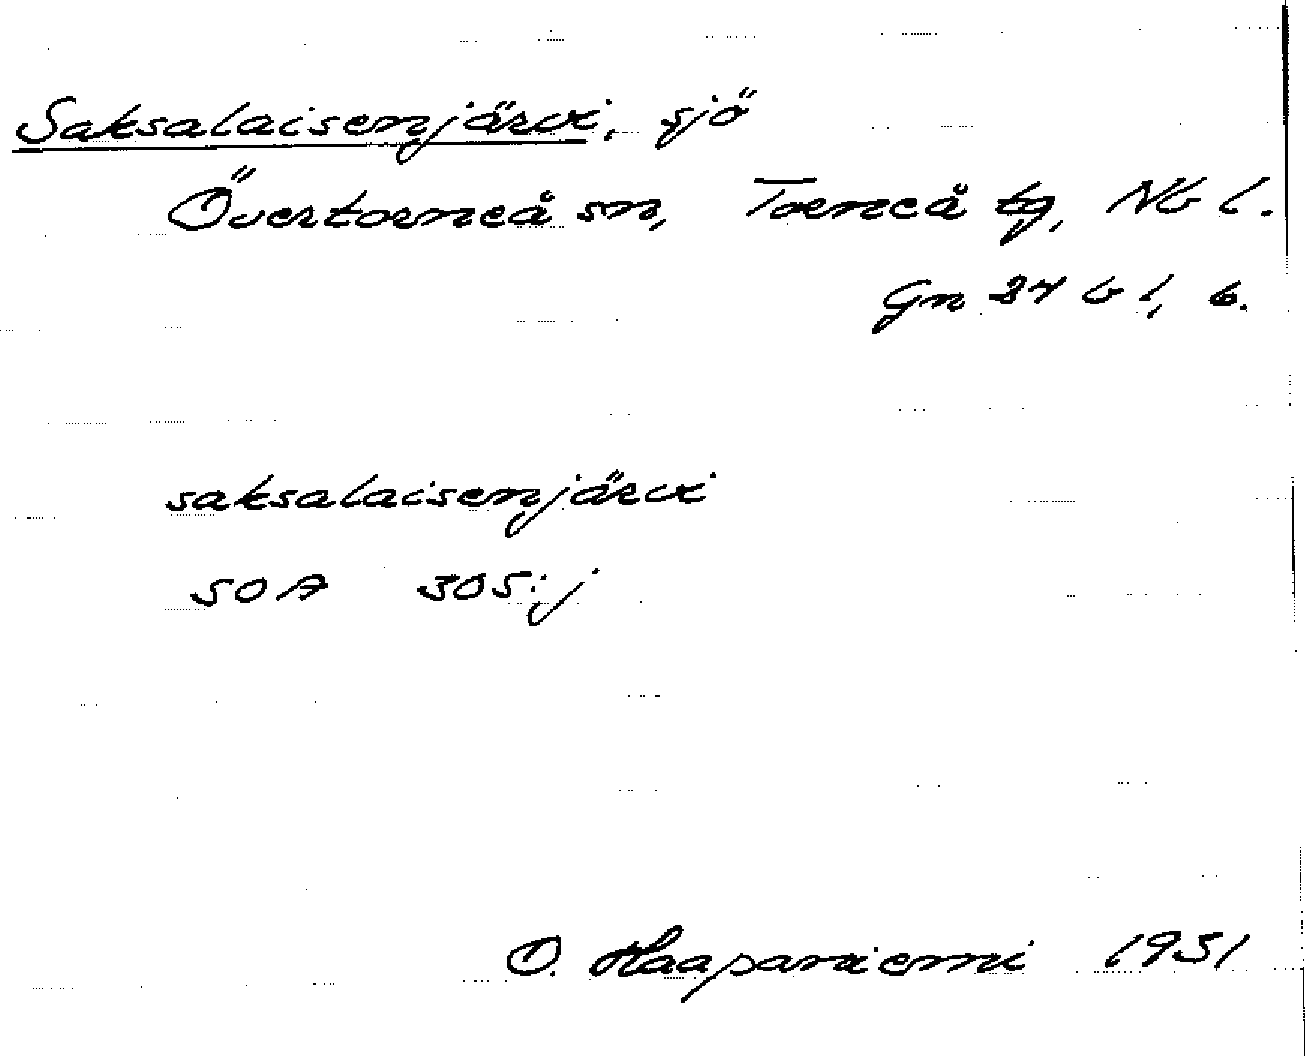 Saksalaisenjärvi, sjö
Övertorneå sn, Torneå tg, Nb l.
Gn 24 b l, b.
saksalaisenjärvi
SOA 305:j
O. Haapaniemi 1931